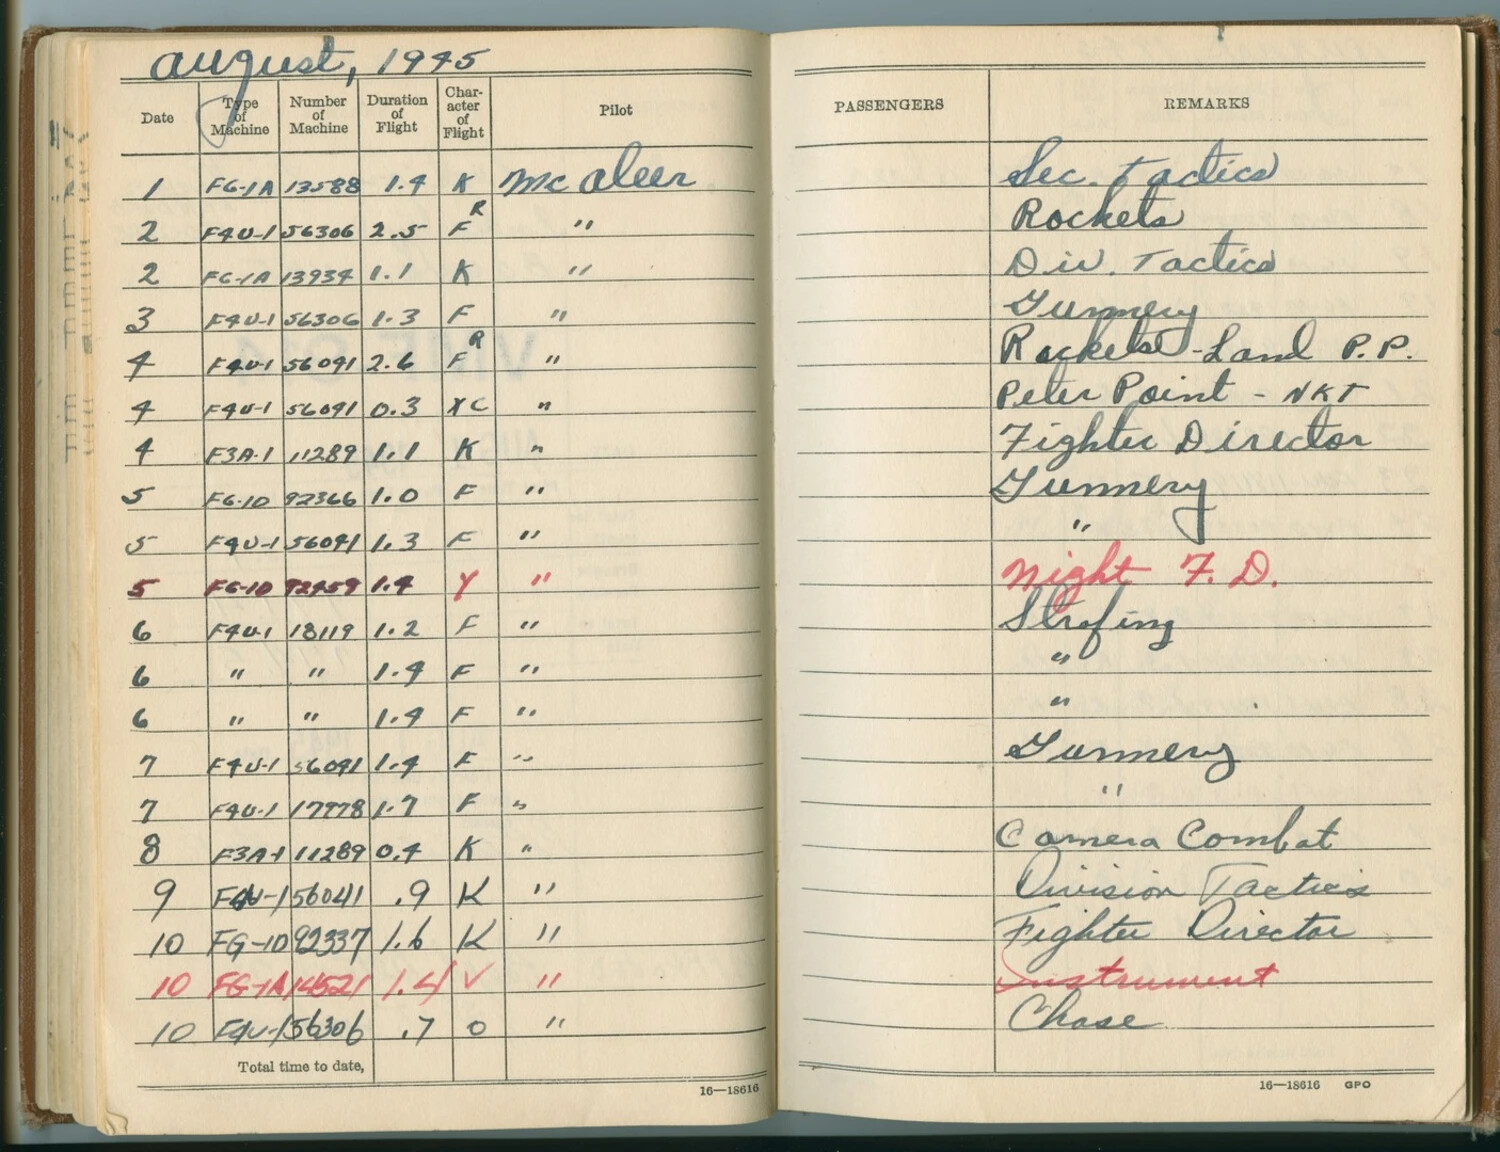 August, 1945
Date Type of Machine Number of Machine Duration of Flight Char- acter of Flight Pilot PASSENGERS REMARKS
1 FG-1A 13588 1.4 K McAleer Sec. Tactics
2 F4U-1 56306 2.5 F R " Rockets
2 FG-1A 13934 1.1 K " Div. Tactics
3 F4U-1 56306 1.3 F " Gunnery
4 F4U-1 56091 2.6 F R " Rockets - Land P.P.
4 F4U-1 56091 0.3 XC " Peter Point - NKT
4 F3A-1 11289 1.1 K " Fighter Director
5 FG-1D 92366 1.0 F " Gunnery
5 F4U-1 56091 1.3 F " "
5 FG-1D 92459 1.4 Y " Night F.D.
6 F4U-1 18119 1.2 F " Strafing
6 " " 1.4 F " "
6 " " 1.4 F " "
7 F4U-1 56091 1.4 F " Gunnery
7 F4U-1 17778 1.7 F " "
8 F3A-1 11289 0.4 K " Camera Combat
9 F4U-1 56041 .9 K " Division Tactics
10 FG-1D 92337 1.6 K " Fighter Director
10 FG-1A 14521 1.4 V " Instrument
10 F4U-1 56306 .7 O " Chase
Total time to date,
16—18616
16—18616 GPO